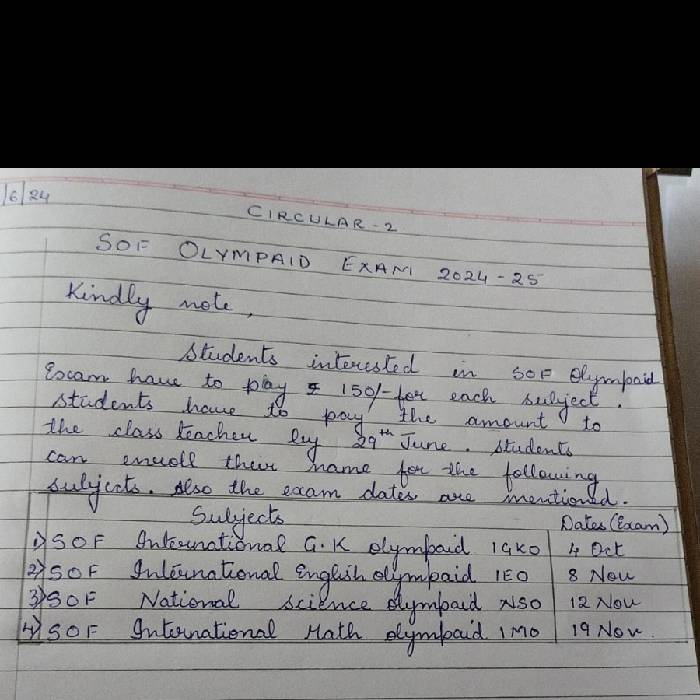 /6/24
CIRCULAR-2
SOF OLYMPAID EXAM 2024-25
Kindly note,
Students interested in SOF Olympaid
Exam have to pay ₹ 150/- for each subject.
Students have to pay the amount to
the class teacher by 29th June. Students
can enroll their name for the following
subjects. Also the exam dates are mentioned.
Subjects Dates (Exam)
1) SOF International G.K olympaid IGKO 4 Oct
2) SOF International English olympaid IEO 8 Nov
3) SOF National science olympaid NSO 12 Nov
4) SOF International Math olympaid IMO 19 Nov.